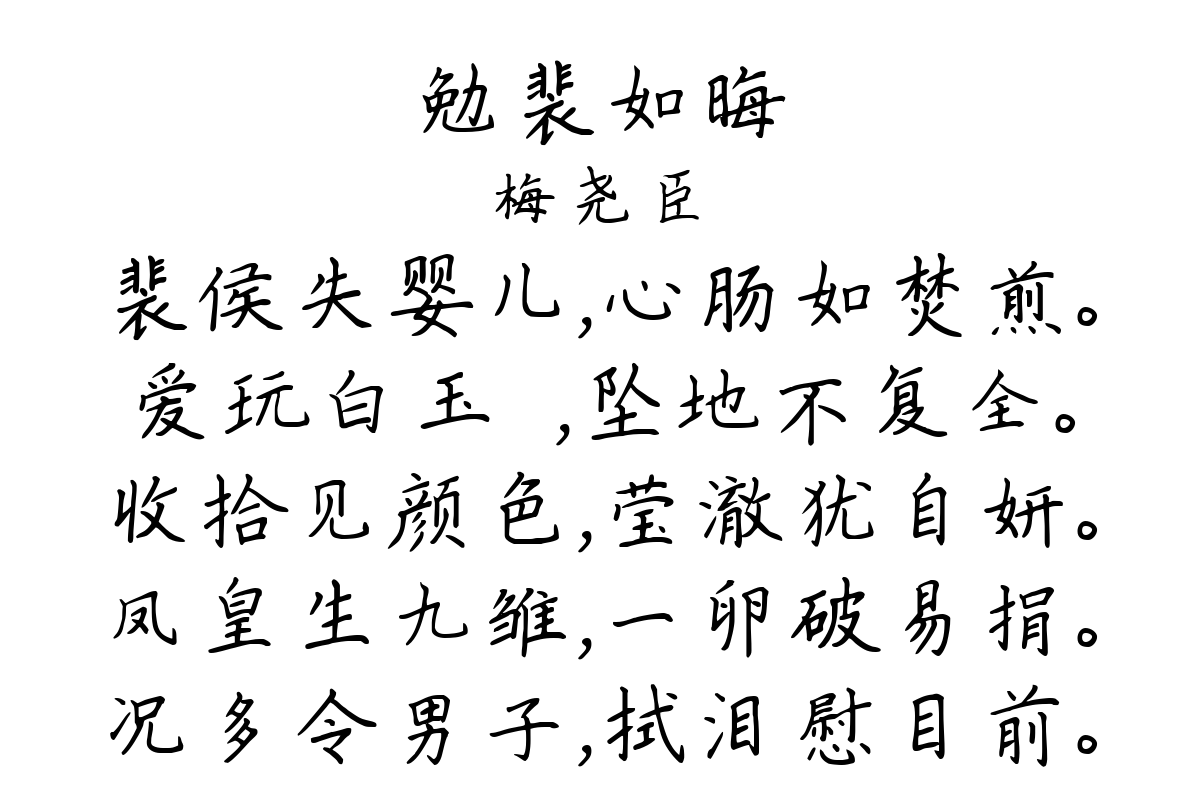 勉裴如晦
梅尧臣
裴侯失婴儿,心肠如焚煎。
爱玩白玉 ,坠地不复全。
收拾见颜色,莹澈犹自妍。
凤皇生九雏,一卵破易捐。
况多令男子,拭泪慰目前。